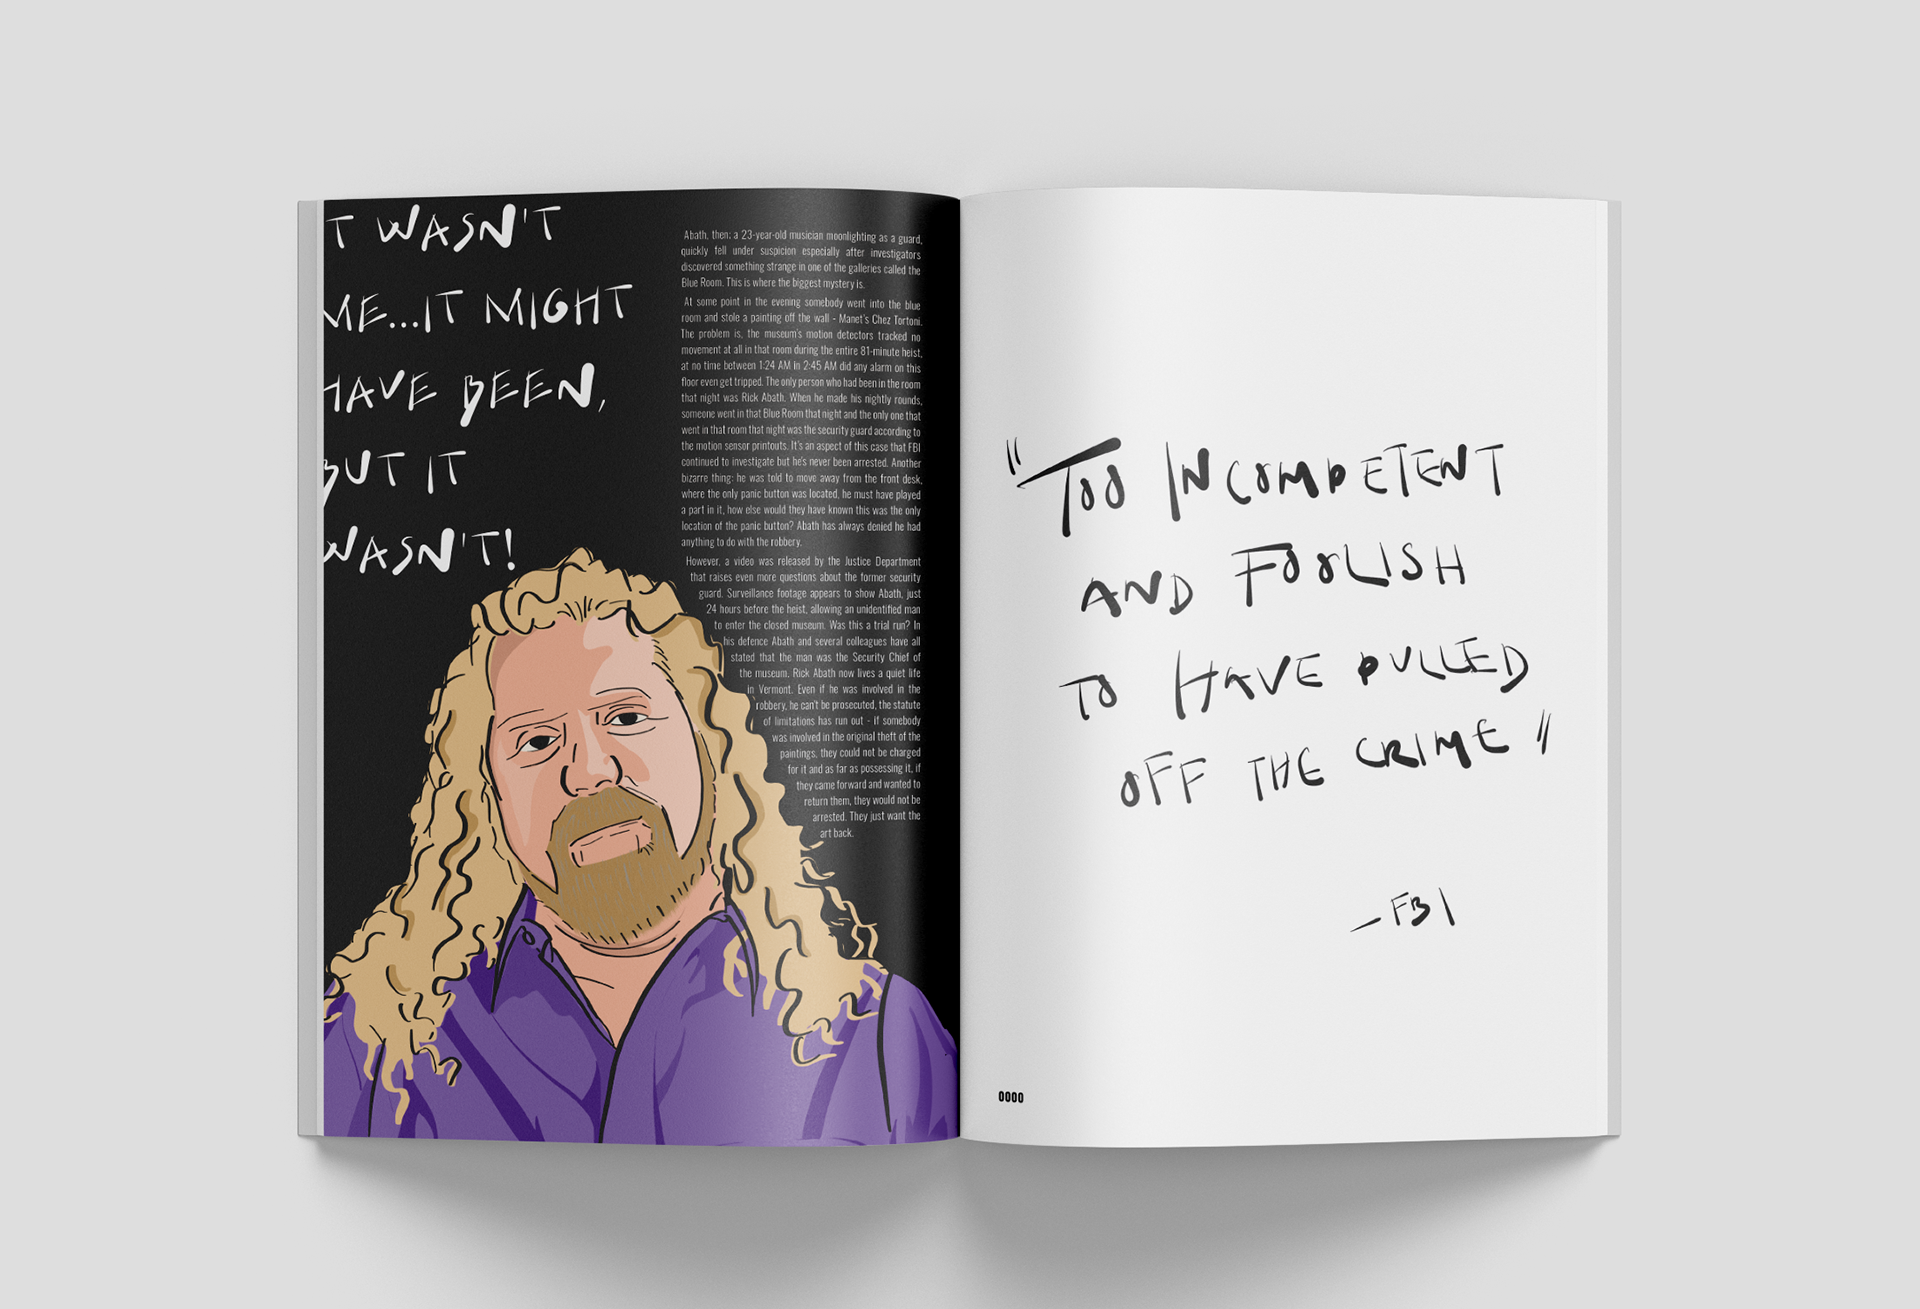 T WASN'T
ME...IT MIGHT
HAVE BEEN,
BUT IT
WASN'T!
Abath, then; a 23-year-old musician moonlighting as a guard,
quickly fell under suspicion especially after investigators
discovered something strange in one of the galleries called the
Blue Room. This is where the biggest mystery is.
At some point in the evening somebody went into the blue
room and stole a painting off the wall - Manet's Chez Tortoni.
The problem is, the museum's motion detectors tracked no
movement at all in that room during the entire 81-minute heist,
at no time between 1:24 AM in 2:45 AM did any alarm on this
floor even get tripped. The only person who had been in the room
that night was Rick Abath. When he made his nightly rounds,
someone went in that Blue Room that night and the only one that
went in that room that night was the security guard according to
the motion sensor printouts. It's an aspect of this case that FBI
continued to investigate but he's never been arrested. Another
bizarre thing: he was told to move away from the front desk,
where the only panic button was located, he must have played
a part in it, how else would they have known this was the only
location of the panic button? Abath has always denied he had
anything to do with the robbery.
However, a video was released by the Justice Department
that raises even more questions about the former security
guard. Surveillance footage appears to show Abath, just
24 hours before the heist, allowing an unidentified man
to enter the closed museum. Was this a trial run? In
his defence Abath and several colleagues have all
stated that the man was the Security Chief of
the museum. Rick Abath now lives a quiet life
in Vermont. Even if he was involved in the
robbery, he can't be prosecuted, the statute
of limitations has run out - if somebody
was involved in the original theft of the
paintings, they could not be charged
for it and as far as possessing it, if
they came forward and wanted to
return them, they would not be
arrested. They just want the
art back.
"TOO INCOMPETENT
AND FOOLISH
TO HAVE PULLED
OFF THE CRIME"
-FBI
0000